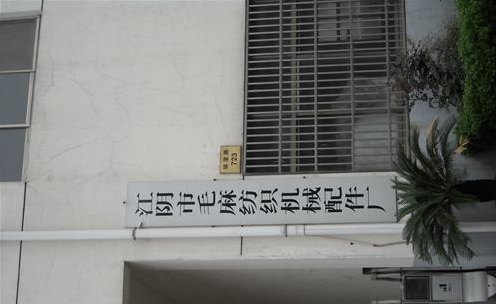 江阴市毛麻纺织机械配件厂
723